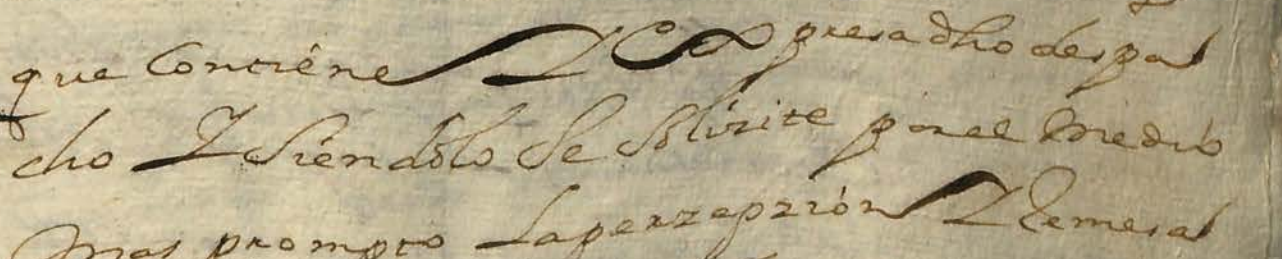 que Contiene Y Expresa dho despa
cho Y Siendolo Se Solizite por el medio
mas prompto La perzepzion Y Remesa